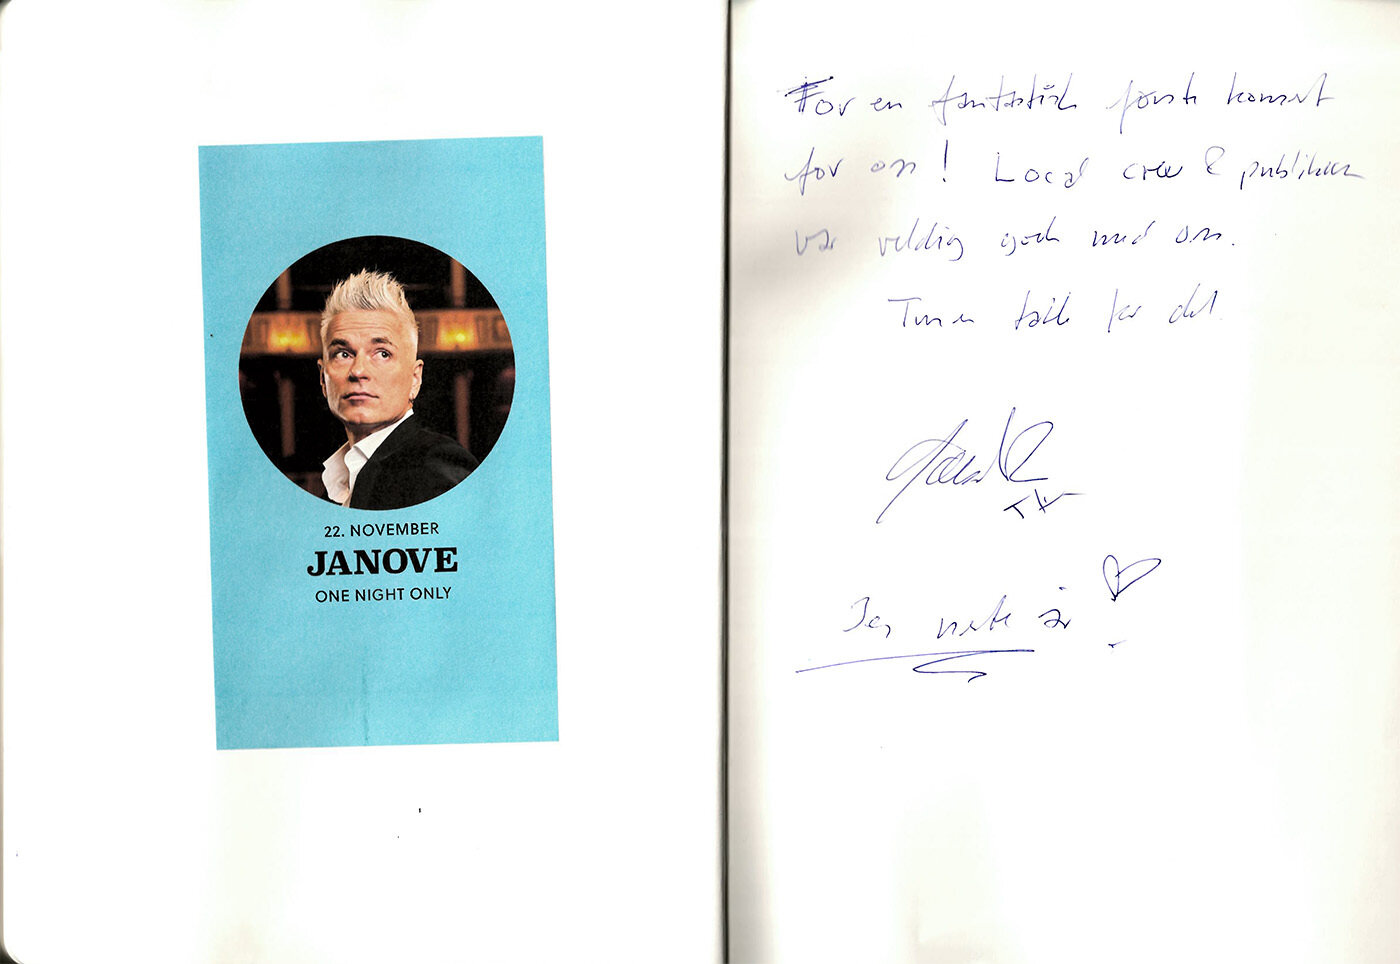 22. NOVEMBER
JANOVE
ONE NIGHT ONLY
For en fantastisk første konsert
for oss! Local crew & publikum
var veldig gode med oss.
Tusen takk for det.
neste år !